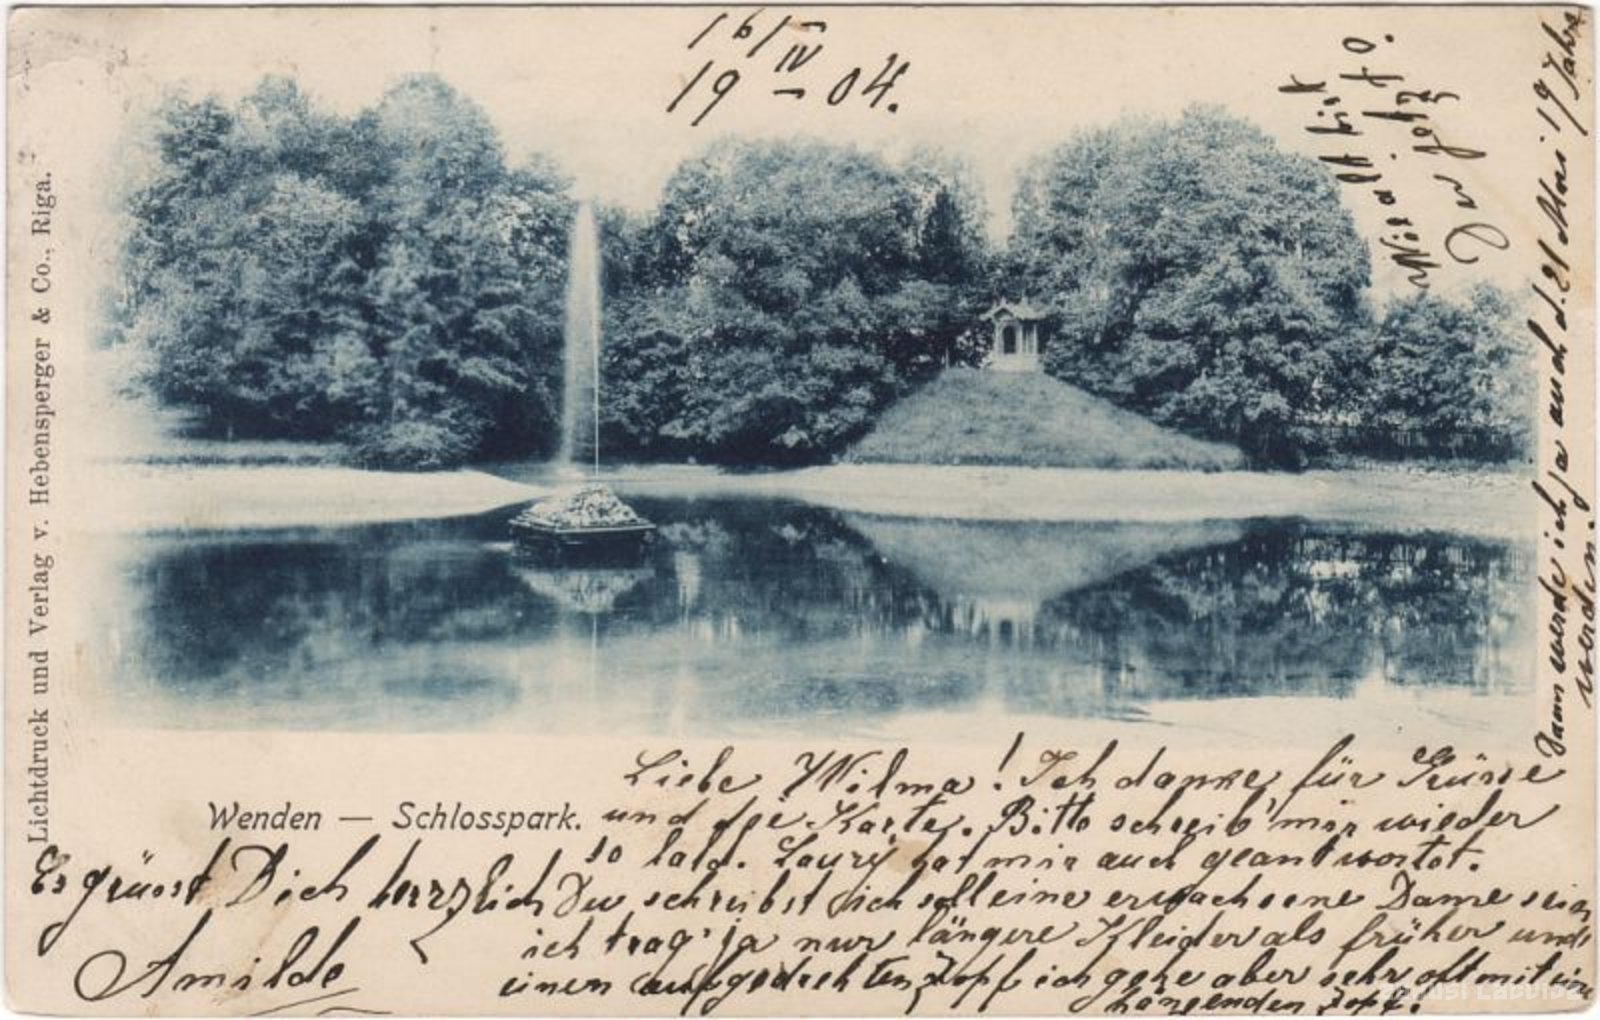 16/IV
19 — 04.
Wie alt bist
Du jetzt?
Dann werde ich ja auch d. 21 Mai 19 Jahre
werden.
Lichtdruck und Verlag v. Hebensperger & Co., Riga.
Wenden — Schlosspark.
Liebe Wilma! Ich danke für Grüsse
und die Karte. Bitte schreib' mir wieder
so bald. Laury hat mir auch geantwortet.
Du schreibst ich soll eine erwachsene Dame sein
ich trag' ja nur längere Kleider als früher und
einen aufgedrehten Zopf ich gehe aber sehr oft mit
hängenden Zopf.
Es grüsst Dich herzlich
Amilde